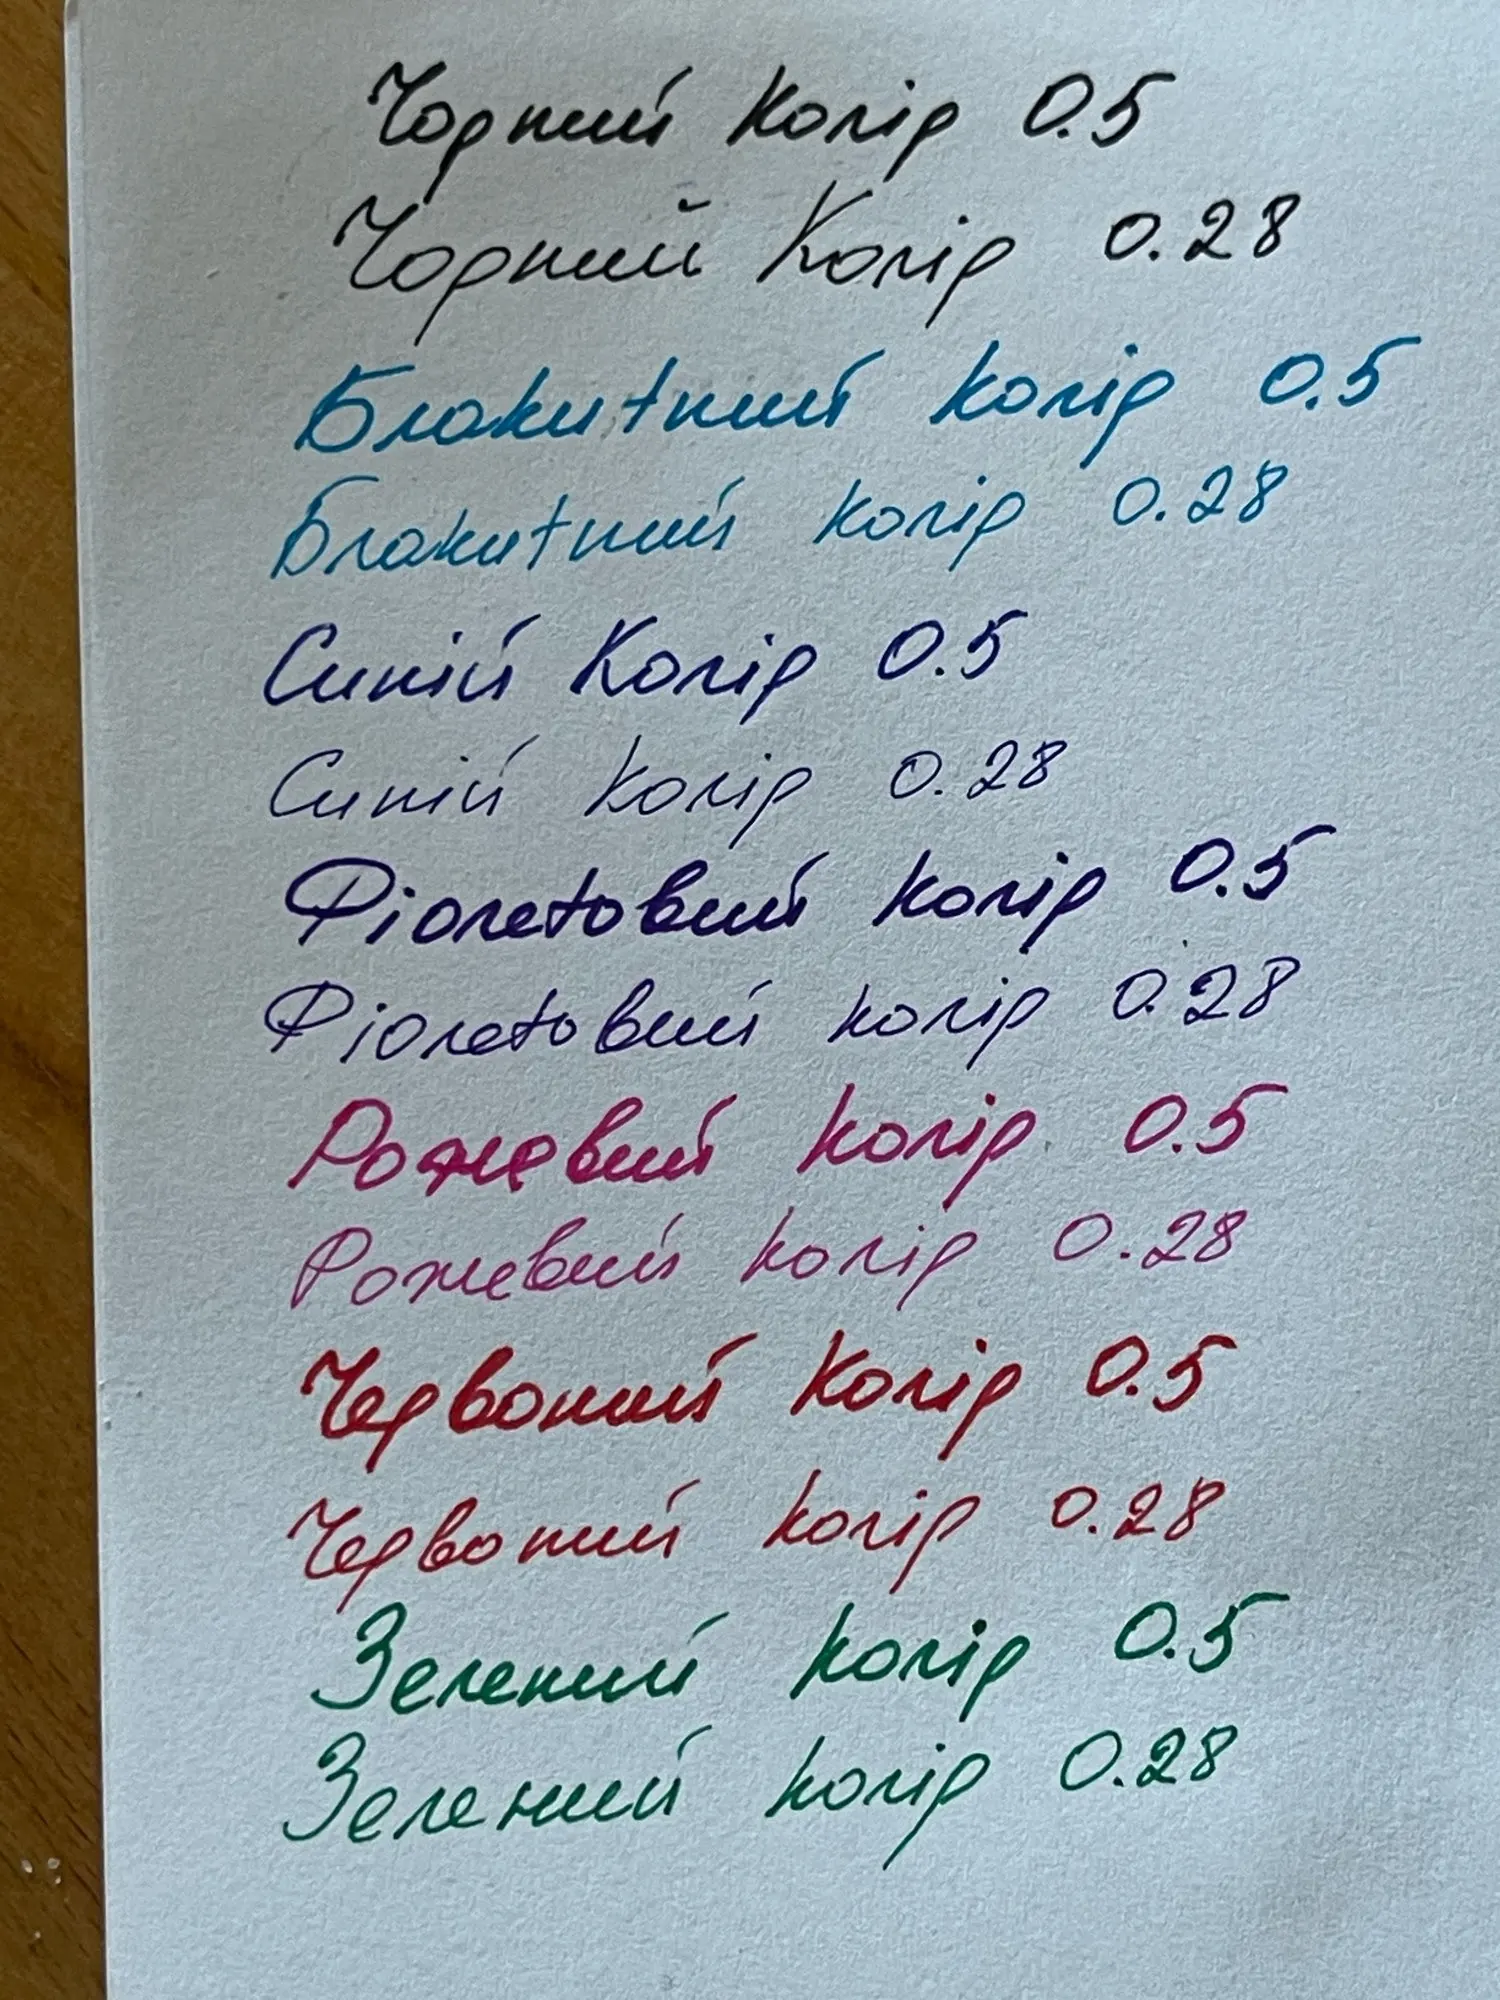 Чорний колір 0.5
Чорний Колір 0.28
Блакитний колір 0.5
Блакитний колір 0.28
Синій Колір 0.5
Синій колір 0.28
Фіолетовий колір 0.5
Фіолетовий колір 0.28
Рожевий колір 0.5
Рожевий колір 0.28
Червоний Колір 0.5
Червоний колір 0.28
Зелений колір 0.5
Зелений колір 0.28